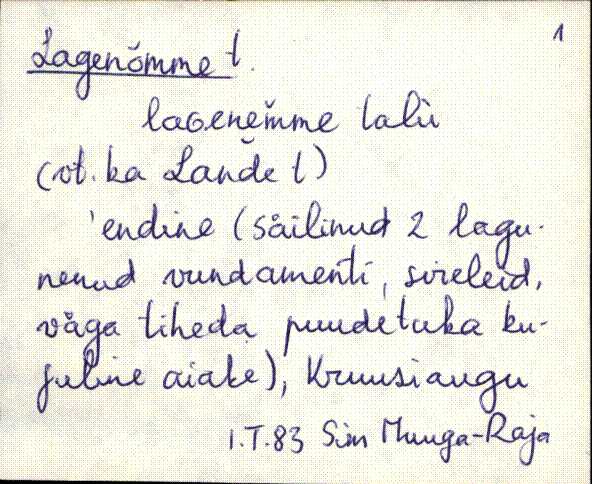 1
Lagenõmme t.
laɢenè̮mme talù
(vt. ka Lande t)
endine (säilinud 2 lagu-
nenud vundamenti, sireleid,
väga tiheda puudetuka ku-
juline aiake), Kruusiaugu
I.T.83 Sim Muuga-Raja